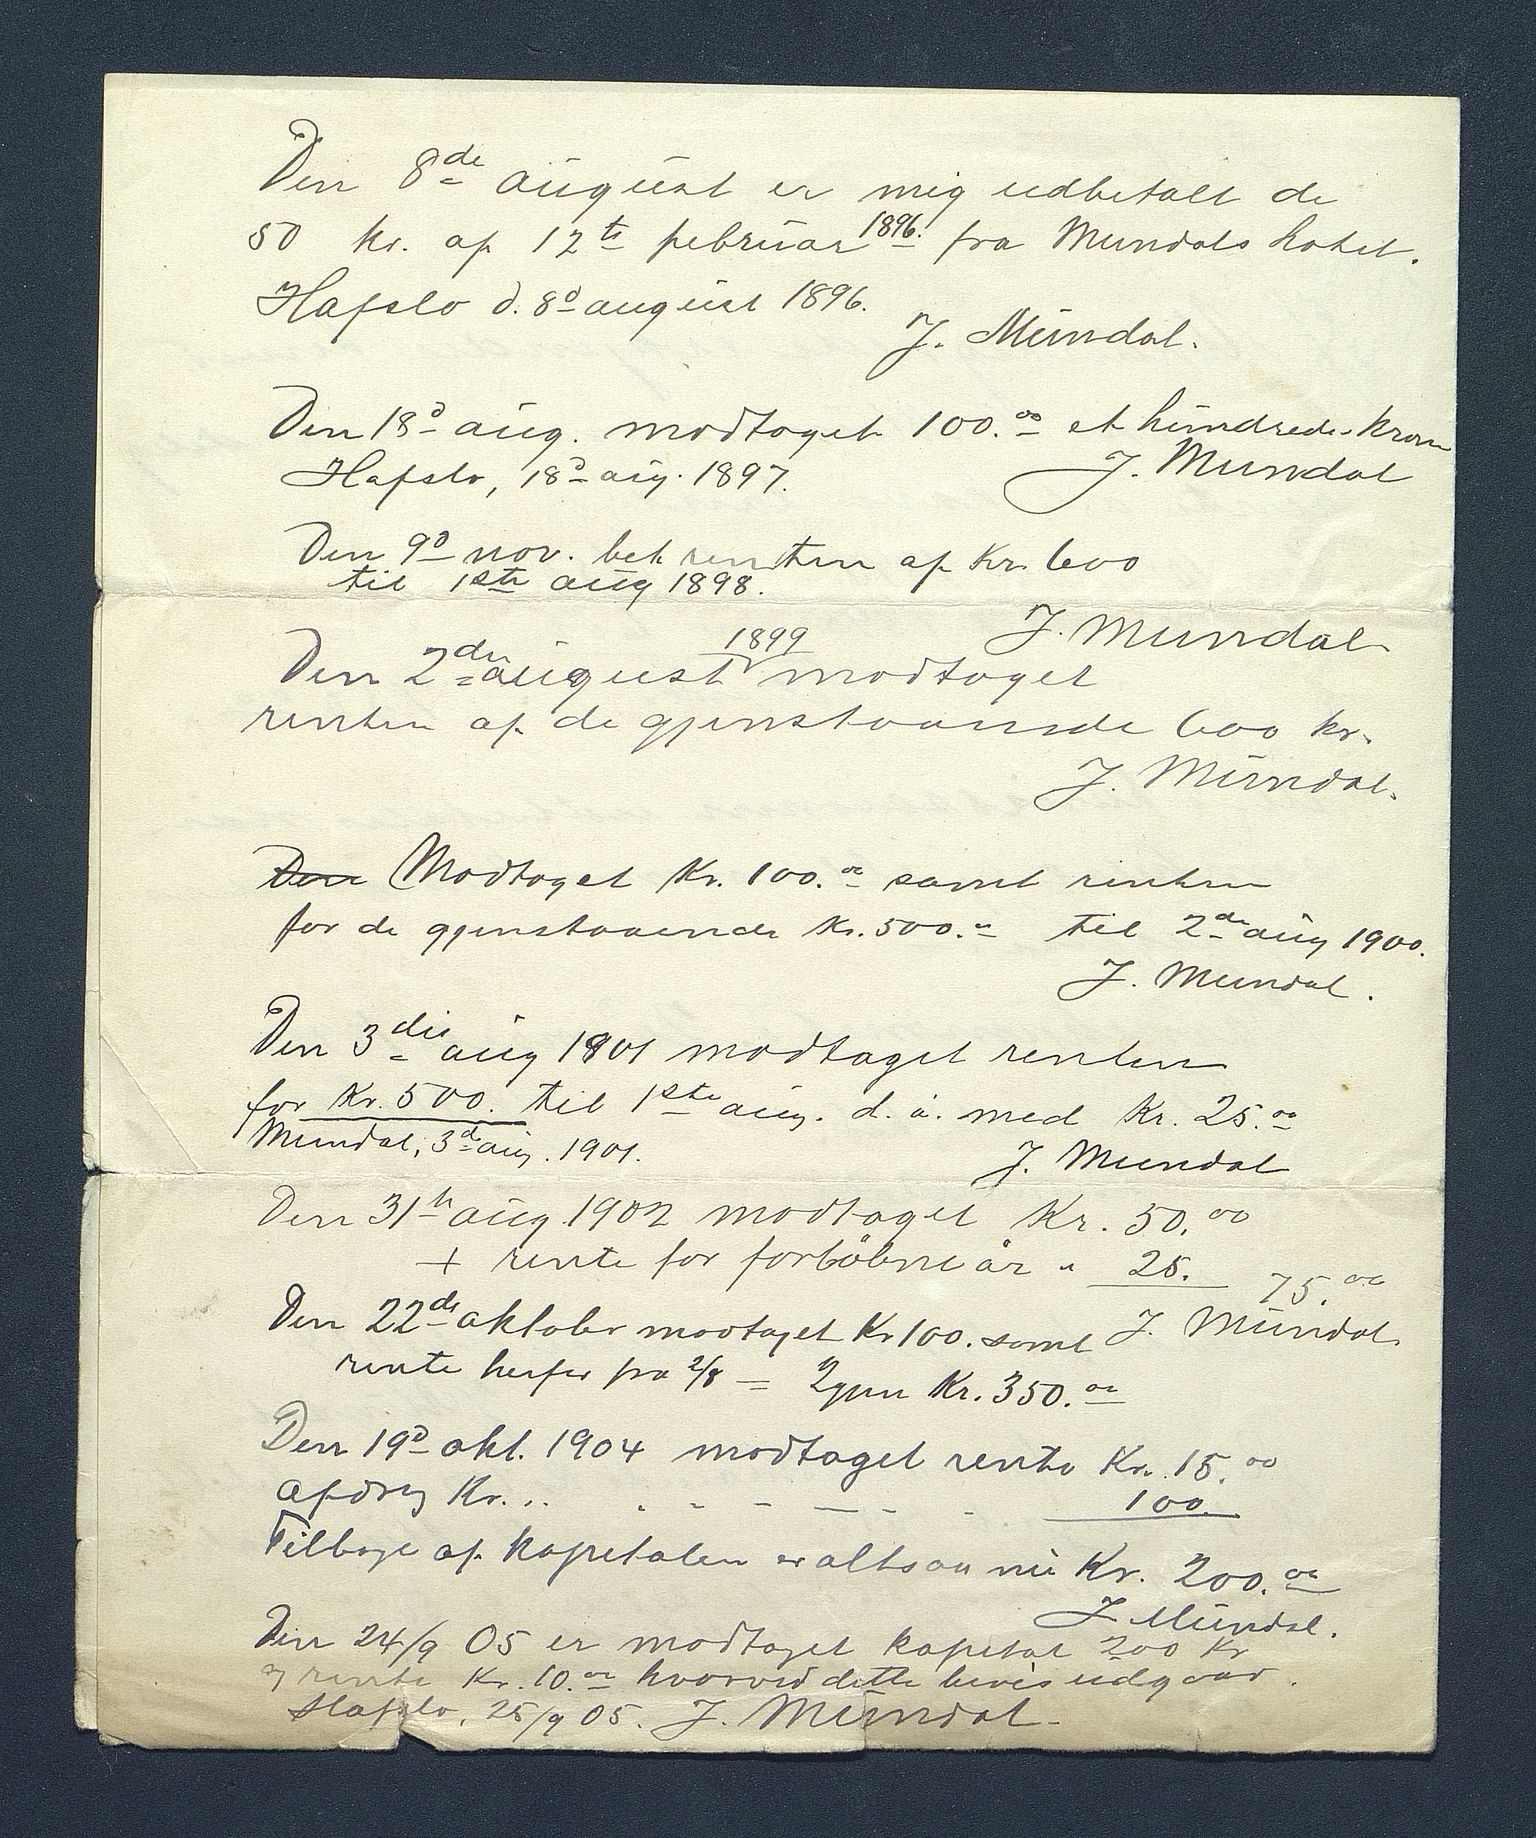 Den 8de august er mig udbetalt de
50 kr. af 12te februar 1896. fra Mundals hotel.
Hafslo d. 8d august 1896.
J. Mundal.
Den 18d aug. modtaget 100.00 et hundrede kroner
Hafslo, 18d aug. 1897.
J. Mundal
Den 9d nov. bet renten af Kr 600
til 1ste aug 1898.
J. Mundal
Den 2den august 1899 modtaget
renten af de gjenstaaende 600 kr.
J. Mundal.
Den Modtaget Kr. 100.00 samt renten
for de gjenstaaende Kr. 500.00 til 2de aug 1900.
J. Mundal.
Den 3die aug 1901 modtaget renten
for Kr. 500. til 1ste aug. d. å. med Kr. 25.00
Mundal, 3de aug. 1901.
J. Mundal
Den 31te aug 1902 modtaget Kr. 50.00
+ rente for forløbne år " 25. 75.00
J. Mundal
Den 22de oktober modtaget Kr 100. samt
rente herfor fra 2/8 = Igjen Kr. 350.00
Den 19d okt. 1904 modtaget rente Kr. 15.00
Afdrag Kr. . . . . - - - - 100.
Tilbage af kapitalen er altsaa nu Kr. 200.00
J Mundal.
Den 24/9 05 er modtaget kapital 200 Kr
og rente Kr. 10.00 hvorved dette bevis udgaar.
Hafslo, 25/9 05. J. Mundal.